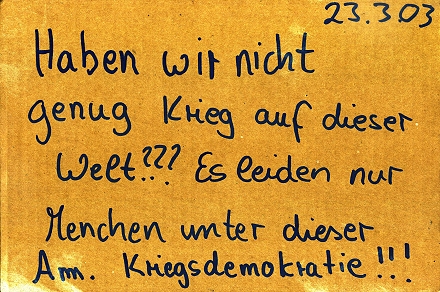 23.3 03
Haben wir nicht
genug Krieg auf dieser
Welt??? Es leiden nur
Menchen unter dieser
Am. Kriegsdemokratie!!!